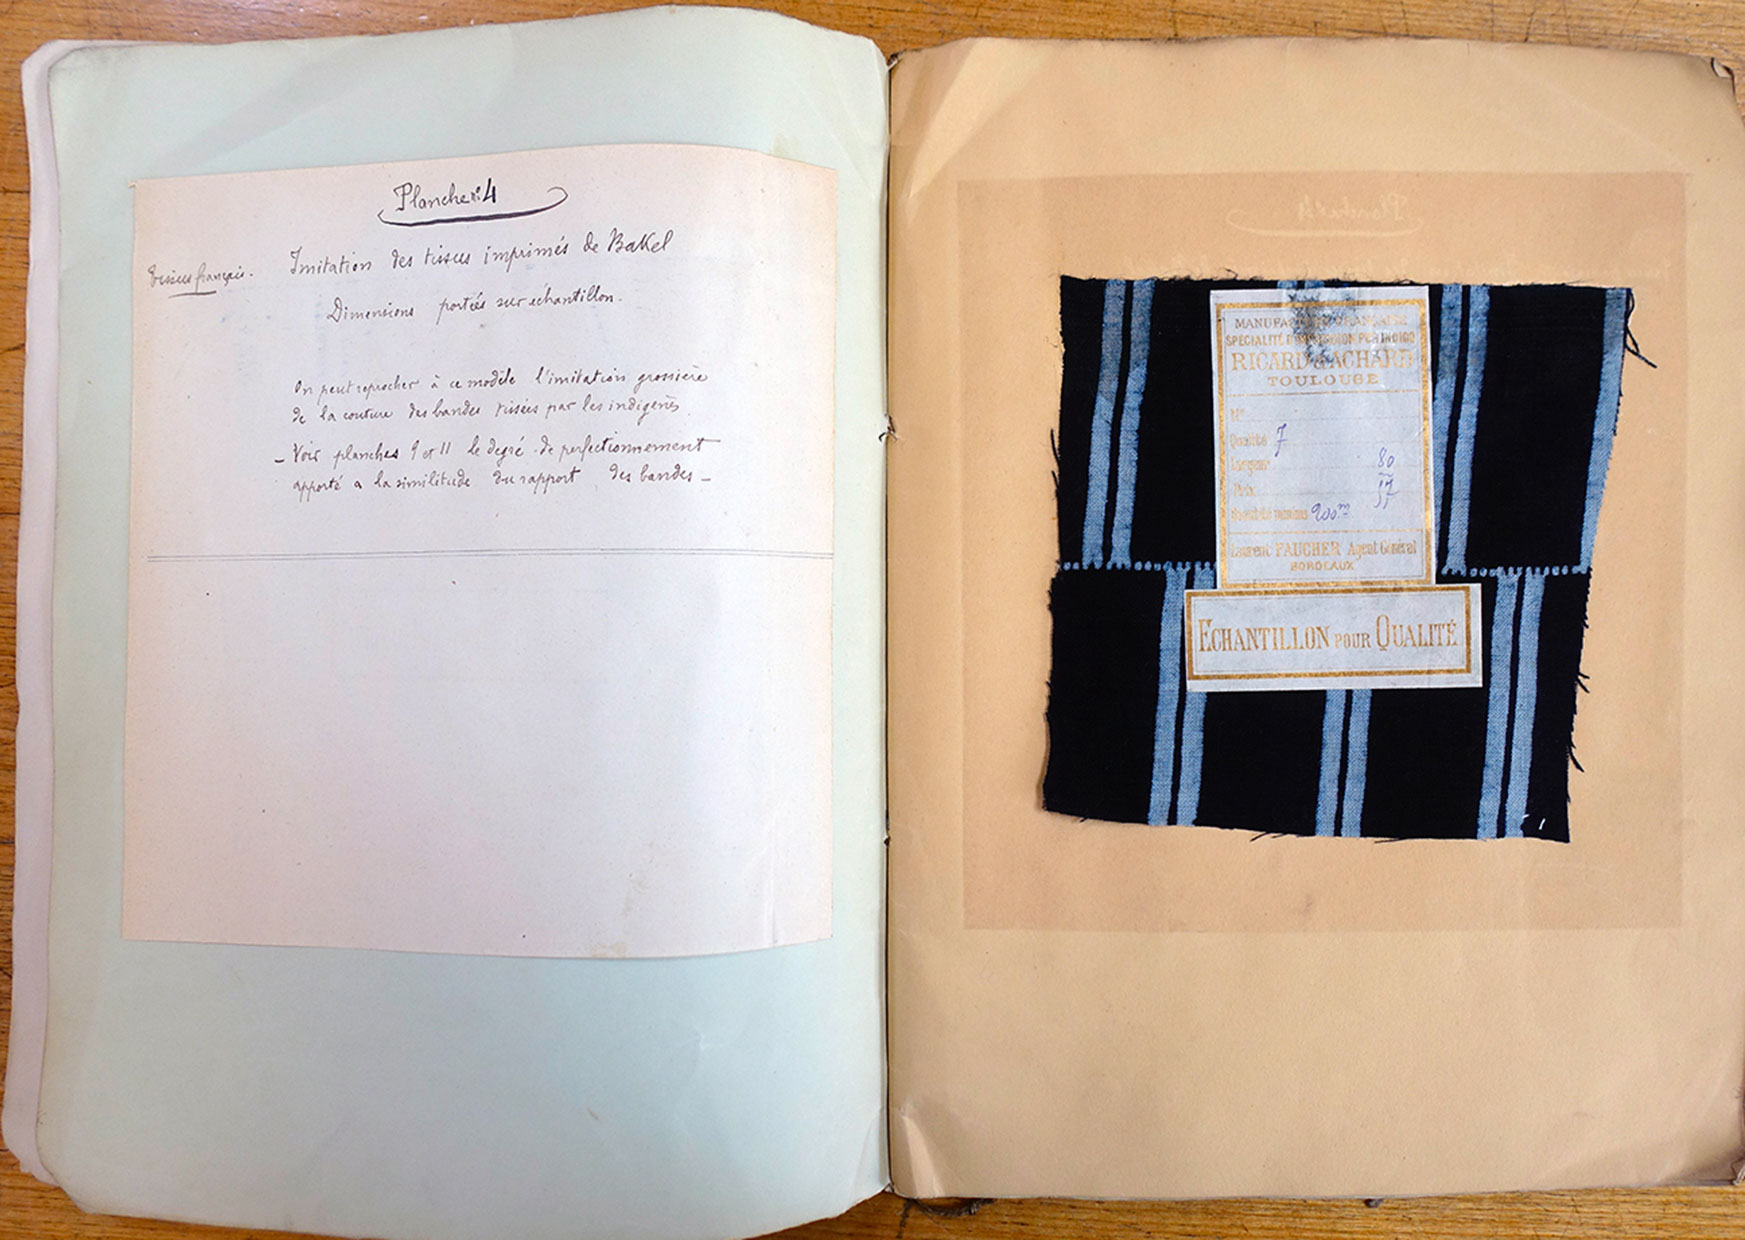 Planche nº 4
Tissus français.
Imitation des tissus imprimés de Bakel
Dimensions portées sur échantillon.
On peut reprocher à ce modèle l'imitation grossière
de la couture des bandes tissées par les indigènes
- Voir planches 9 et 11 le degré de perfectionnement
apporté a la similitude du rapport des bandes -
MANUFACTURE FRANÇAISE
SPÉCIALITÉ D'IMPRESSION PUR INDIGO
RICARD & ACHARD
TOULOUSE
No
Qualité 7
Largeur 80
Prix
Quantité minima 200m
Laurent FAUCHER Agent Général
BORDEAUX
ECHANTILLON POUR QUALITÉ